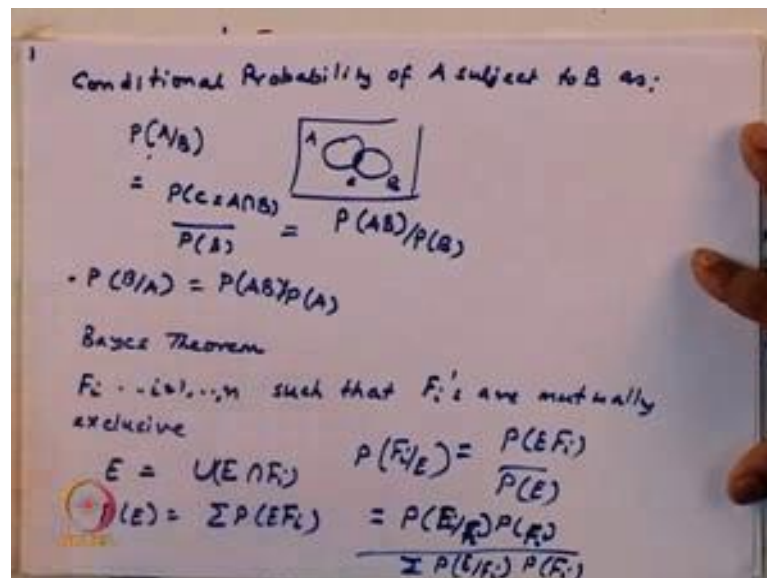 1
Conditional Probability of A subject to B as:
P(A/B)
A B
= P(C = A∩B) / P(B) = P(AB)/P(B)
. P(B/A) = P(AB)/P(A)
Bayes Theorem
Fi - - i=1,..,n such that Fi's are mutually
exclusive
E = U(E ∩ Fi)
P(E) = Σ P(EFi)
P(Fi/E) = P(EFi) / P(E)
= P(E/Fi) P(Fi) / Σ P(E/Fi) P(Fi)